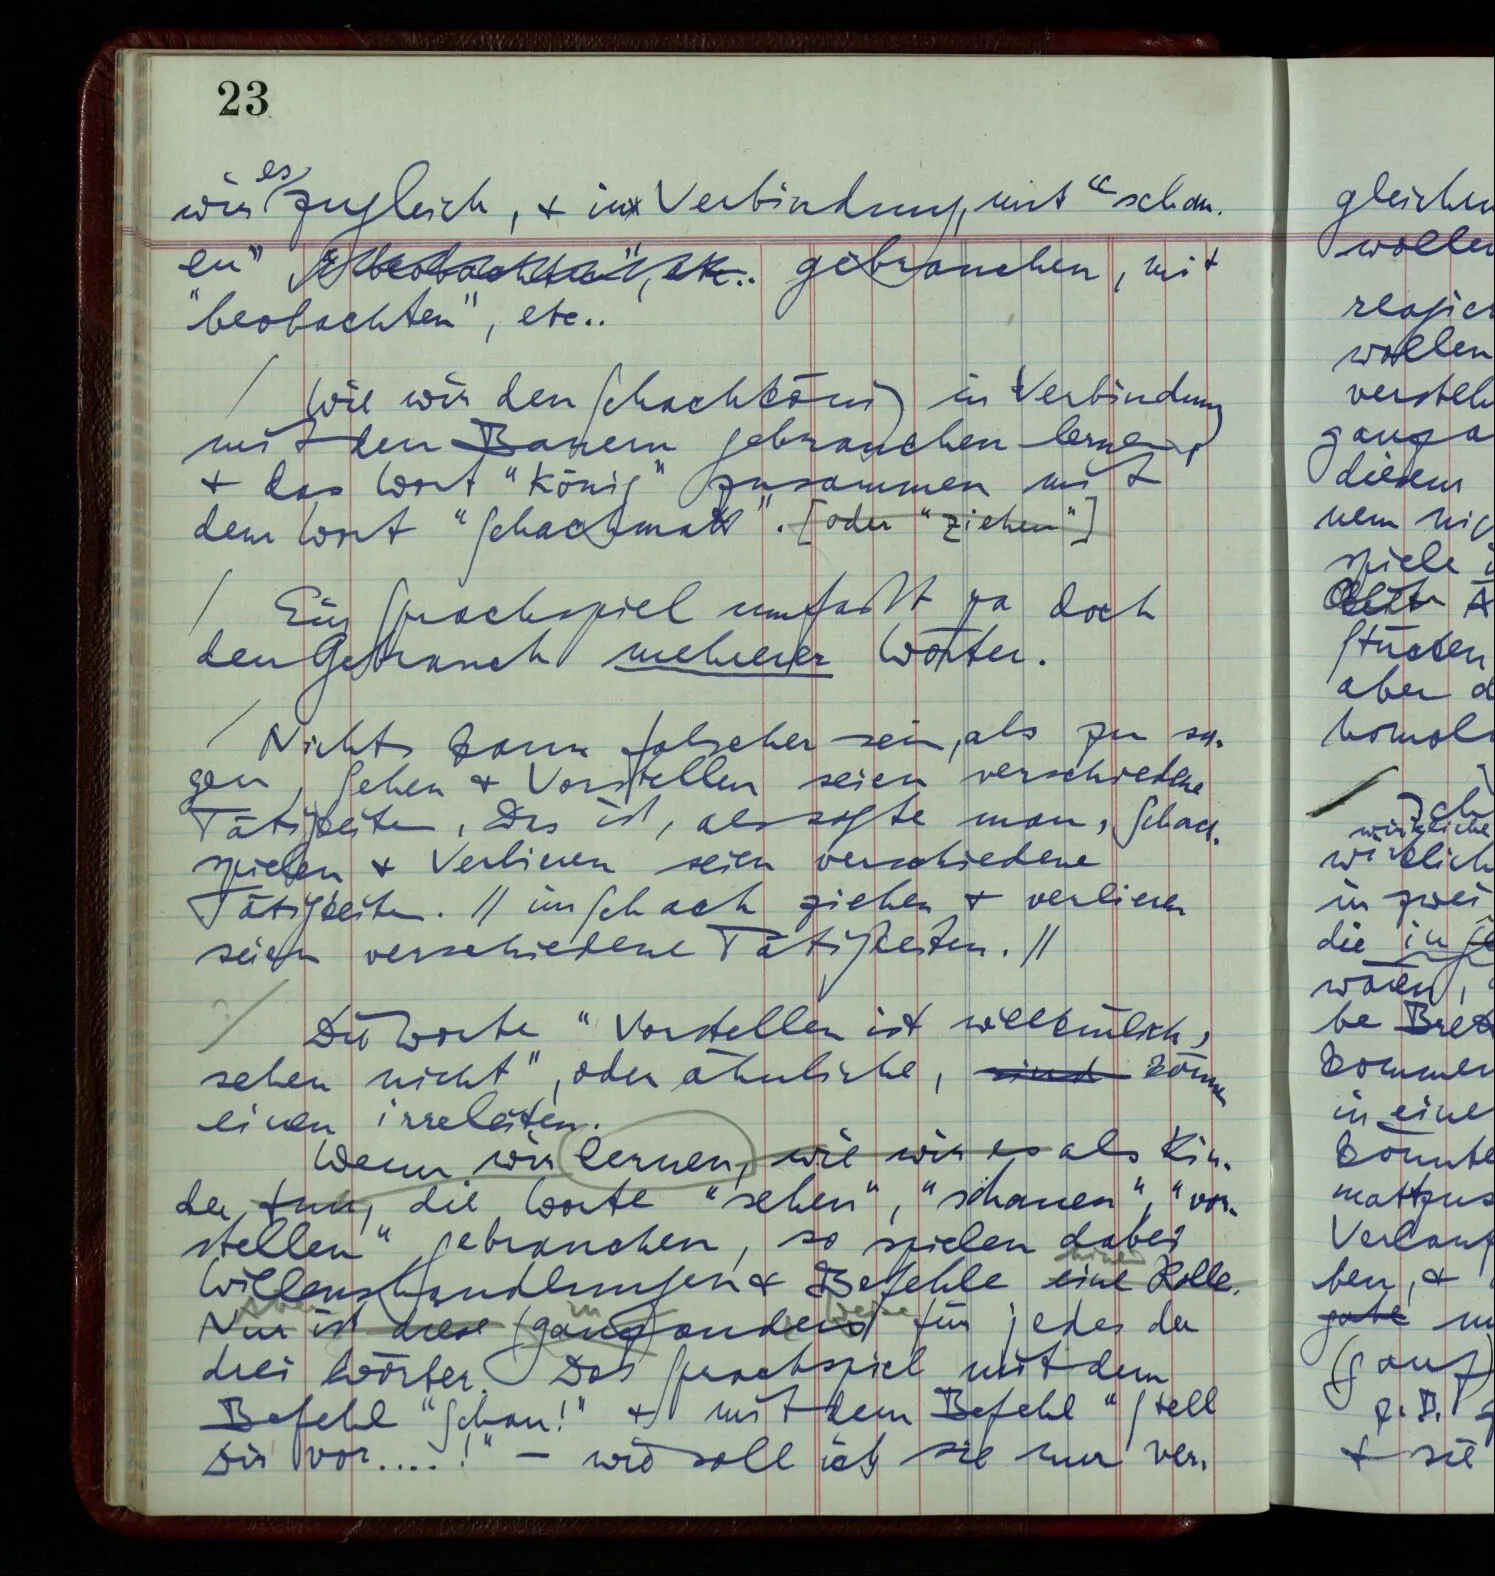 23
wir es zugleich, & in Verbindung, mit "schau-
en" & "beobachten", etc.. gebrauchen, mit
"beobachten", etc..
/ Wie wir den Schachkönig in Verbindung
mit den Bauern gebrauchen lernen,
& das Wort "König" zusammen mit
dem Wort "Schachmatt". [oder "ziehen"]
/ Ein Sprachspiel umfaßt ja doch
den Gebrauch mehrerer Wörter.
/ Nichts kann falscher sein, als zu sa-
gen, Sehen & Vorstellen seien verschiedene
Tätigkeiten. Das ist, als sagte man, Schach-
spielen & Verlieren seien verschiedene
Tätigkeiten. // im Schach ziehen & verlieren
seien verschiedene Tätigkeiten. //
?/ Die Worte "Vorstellen ist willkürlich,
sehen nicht", oder ähnliche, sind können
einen irreleiten.
Wenn wir lernen, wie wir es als Kin-
der tun, die Worte "sehen", "schauen", "vor-
stellen" gebrauchen, so spielen dabei
Willenshandlungen & Befehle eine Rolle.
Aber in
Nur ist diese (ganz anders) für jedes der
drei Wörter. Das Sprachspiel mit dem
Befehl "Schau!" & mit dem Befehl "Stell
Dir vor....!" – wie soll ich sie nur ver-
gleichen
wollen
reagier
wollen
versteh
ganz a
diesem
nem nic
spiele i
Stücken
aber d
homol
/ Ich
wirkliche
wirklich
in zwei
die in
wären,
be Bret
kommen
in eine
könnte
matt zus
Verlauf
ben, &
gabe
(ganz)
z.B.
& sie